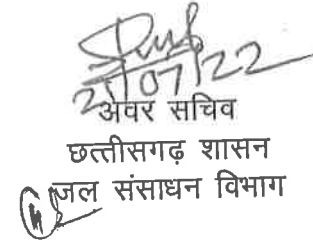 21/07/22
अवर सचिव
छत्तीसगढ़ शासन
जल संसाधन विभाग